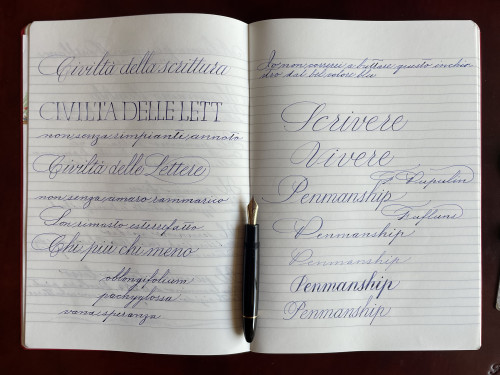 Civiltà della scrittura
CIVILTÀ DELLE LETT
non senza rimpianti, annoto
Civiltà delle Lettere
non senza amaro rammarico
Son rimasto esterrefatto
Chi più chi meno
oblongifolium
pachyglossa
vana speranza
Io non correrei a buttare questo inchio
stro dal bel colore blu
Scrivere
Vivere
Penmanship
Penmanship
Penmanship
Penmanship
Penmanship